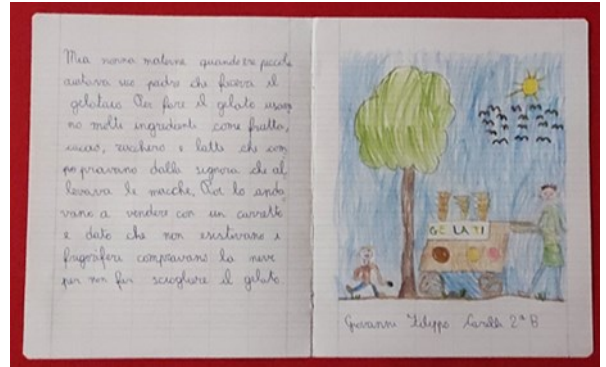 Mia nonna materna quando era piccola
aiutava suo padre che faceva il
gelataio. Per fare il gelato usava
no molti ingredienti come frutta,
cacao, zucchero e latte che com
pravano dalla signora che al
levava le mucche. Poi lo anda
vano a vendere con un carretto
e dato che non esistevano i
frigoriferi compravano la neve
per non far sciogliere il gelato.
GELATI
Giovanni Filippo 2ª B